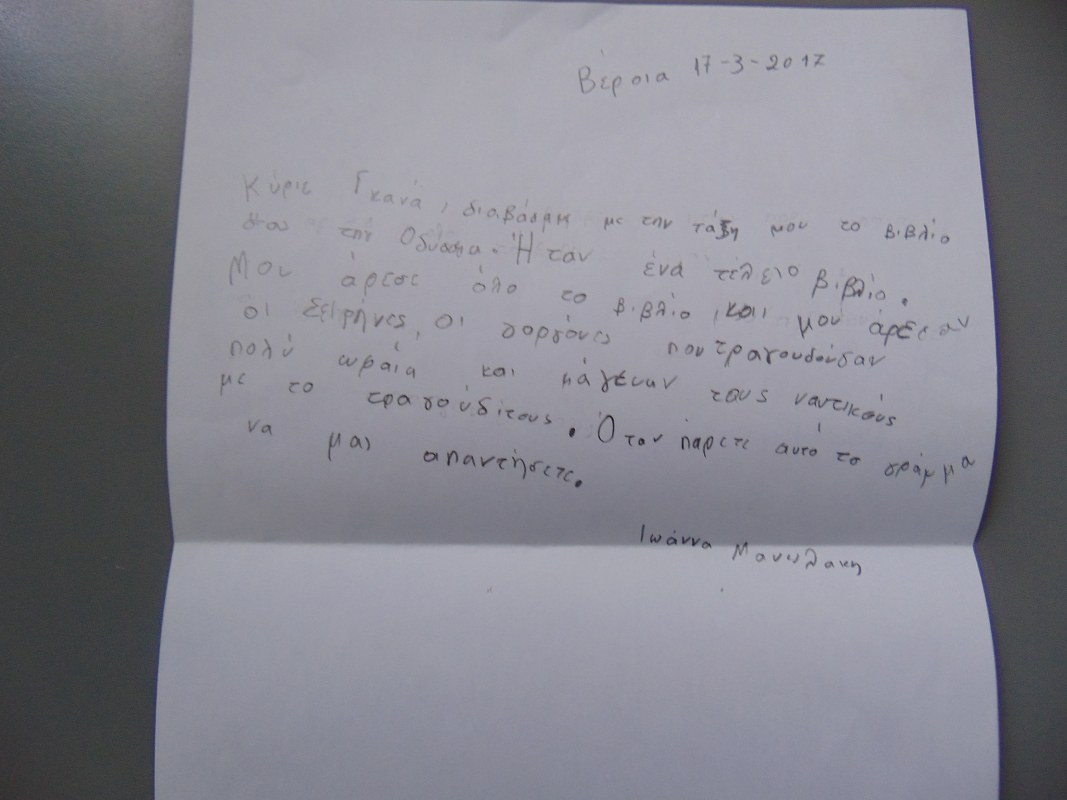 Βέροια 17-3-2017
Κύριε Γκανά, διαβάσαμε με την τάξη μου το βιβλίο
σας την Οδύσσεια. Ήταν ένα τέλειο βιβλίο.
Μου άρεσε όλο το βιβλίο, και μου άρεσαν
οι Σειρήνες, οι γοργόνες που τραγουδούσαν
πολύ ωραία και μάγευαν τους ναυτικούς
με το τραγούδι τους. Όταν πάρετε αυτό το γράμμα
να μας απαντήσετε.
Ιωάννα Μανωλάκη